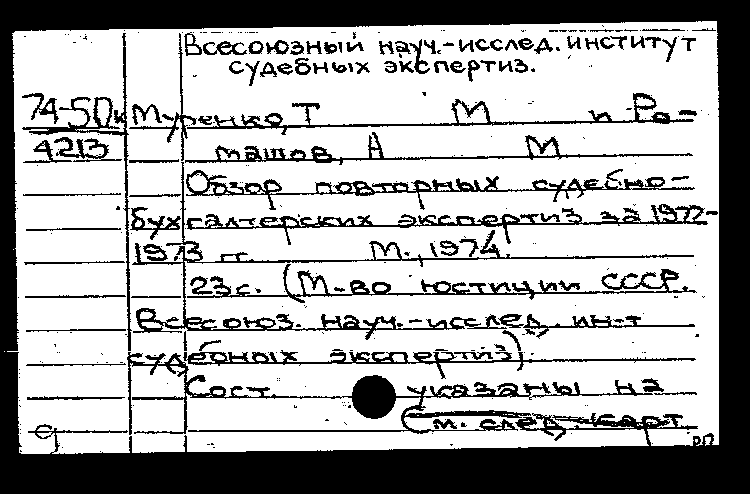 Всесоюзный науч.-исслед. институт
судебных экспертиз.
74-50к Муренко, Т М и Ро-
4213 машов, А М
Обзор повторных судебно-
бухгалтерских экспертиз за 1972-
1973 гг. М., 1974.
23с. (М-во юстиции СССР.
Всесоюз. науч.-исслед. ин-т
судебных экспертиз).
Сост. указаны на
(См. след. карт.